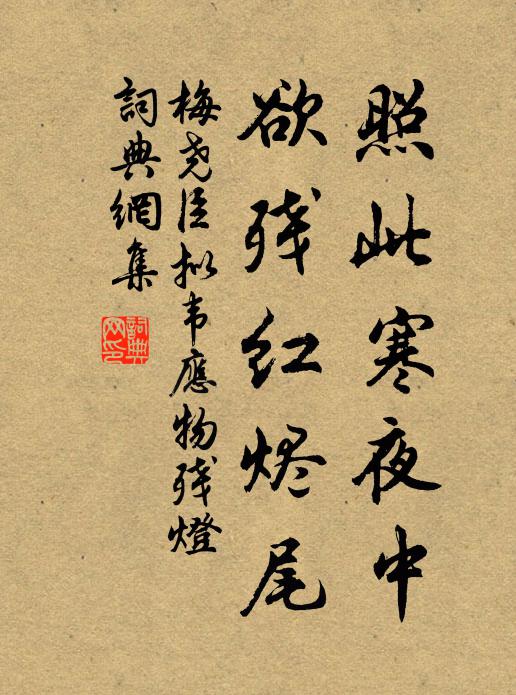 照此寒夜中
欲残红烬尾
梅尧臣拟韦應物残燈
詞典網集
詞典网印